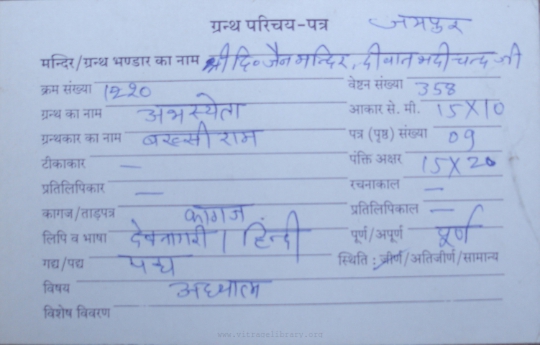 ग्रन्थ परिचय-पत्र जयपुर
मन्दिर/ग्रन्थ भण्डार का नाम श्री दि० जैन मन्दिर, दीवान भदीचन्द जी
क्रम संख्या 1220 वेष्टन संख्या 358
ग्रन्थ का नाम आकार से. मी. 15X10
ग्रन्थकार का नाम बख्सी राम पत्र (पृष्ठ) संख्या 09
टीकाकार — पंक्ति अक्षर 15X20
प्रतिलिपिकार — रचनाकाल —
कागज/ताड़पत्र कागज प्रतिलिपिकाल —
लिपि व भाषा देवनागरी / हिन्दी पूर्ण/अपूर्ण पूर्ण
गद्य/पद्य पद्य स्थिति : जीर्ण/अतिजीर्ण/सामान्य
विषय अध्यात्म
विशेष विवरण